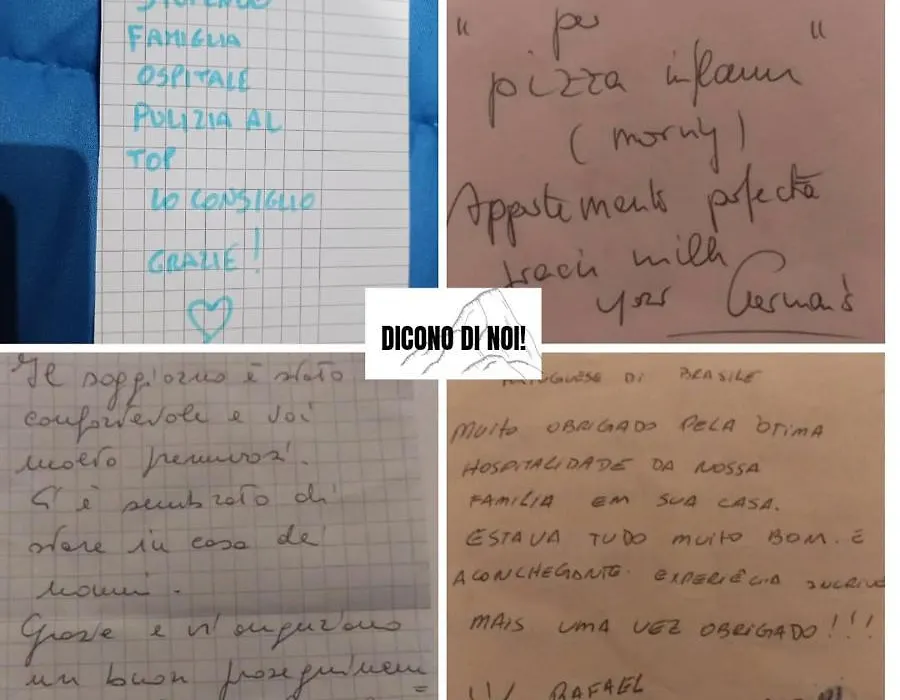 STUPENDO
FAMIGLIA
OSPITALE
PULIZIA AL
TOP
LO CONSIGLIO
GRAZIE!
" per "
pizza
(morny)
Appartemento perfecto
milk
your German's
DICONO DI NOI!
Il soggiorno è stato
confortevole e voi
molto premurosi.
Ci è sembrato di
stare in casa dei
nonni.
Grazie e vi auguriamo
un buon proseguimen
PORTUGUESE DI BRASILE
MUITO OBRIGADO PELA ÓTIMA
HOSPITALIDADE DA NOSSA
FAMILIA EM SUA CASA.
ESTAVA TUDO MUITO BOM. E
ACONCHEGANTE. EXPERIÊCIA INCRIVE
MAIS UMA VEZ OBRIGADO!!!
RAFAEL